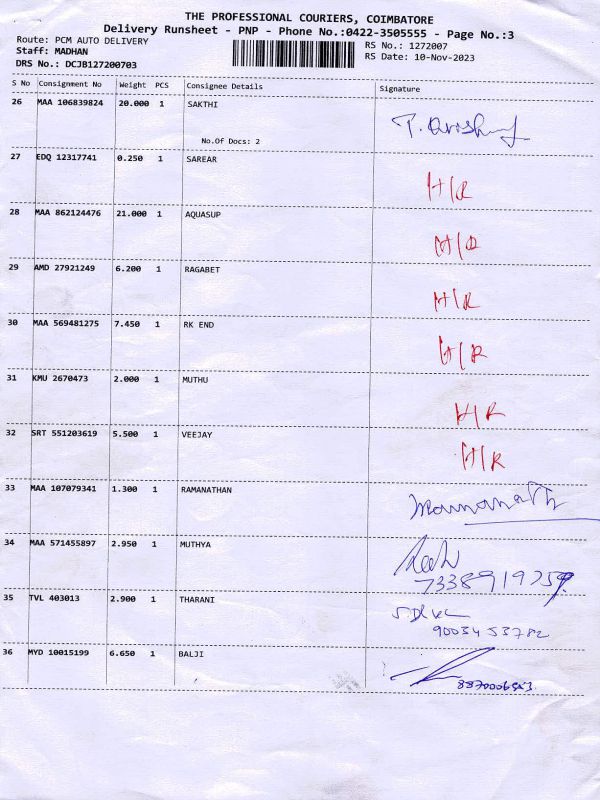 THE PROFESSIONAL COURIERS, COIMBATORE
Delivery Runsheet - PNP - Phone No.:0422-3505555 - Page No.:3
Route: PCM AUTO DELIVERY
Staff: MADHAN
DRS No.: DCJB127200703
RS No.: 1272007
RS Date: 10-Nov-2023
S No Consignment No Weight PCS Consignee Details Signature
26 MAA 106839824 20.000 1 SAKTHI
No.Of Docs: 2
27 EDQ 12317741 0.250 1 SAREAR H/R
28 MAA 862124476 21.000 1 AQUASUP H/R
29 AMD 27921249 6.200 1 RAGABET H/R
30 MAA 569481275 7.450 1 RK END H/R
31 KMU 2670473 2.000 1 MUTHU H/R
32 SRT 551203619 5.500 1 VEEJAY H/R
33 MAA 107079341 1.300 1 RAMANATHAN
34 MAA 571455897 2.950 1 MUTHYA
35 TVL 403013 2.900 1 THARANI
9003453782
36 MYD 10015199 6.650 1 BALJI